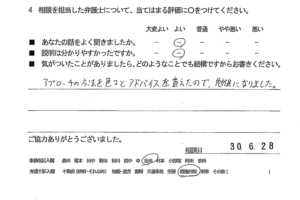 4 相談を担当した弁護士について、当てはまる評価に○をつけてください。
大変よい よい 普通 やや悪い 悪い
■ あなたの話をよく聞きましたか。
■ 説明は分かりやすかったですか。
■ 気がついたことがありましたら、どのようなことでも結構ですからお書きください。
アプローチの方法を色々とアドバイスを貰えたので、勉強になりました。
ご協力ありがとうございました。
相談日 30.6.28
事務局記入欄
弁護士記入欄 不動産 相続・遺言 離婚 交通事故 労働 刑事 その他( )